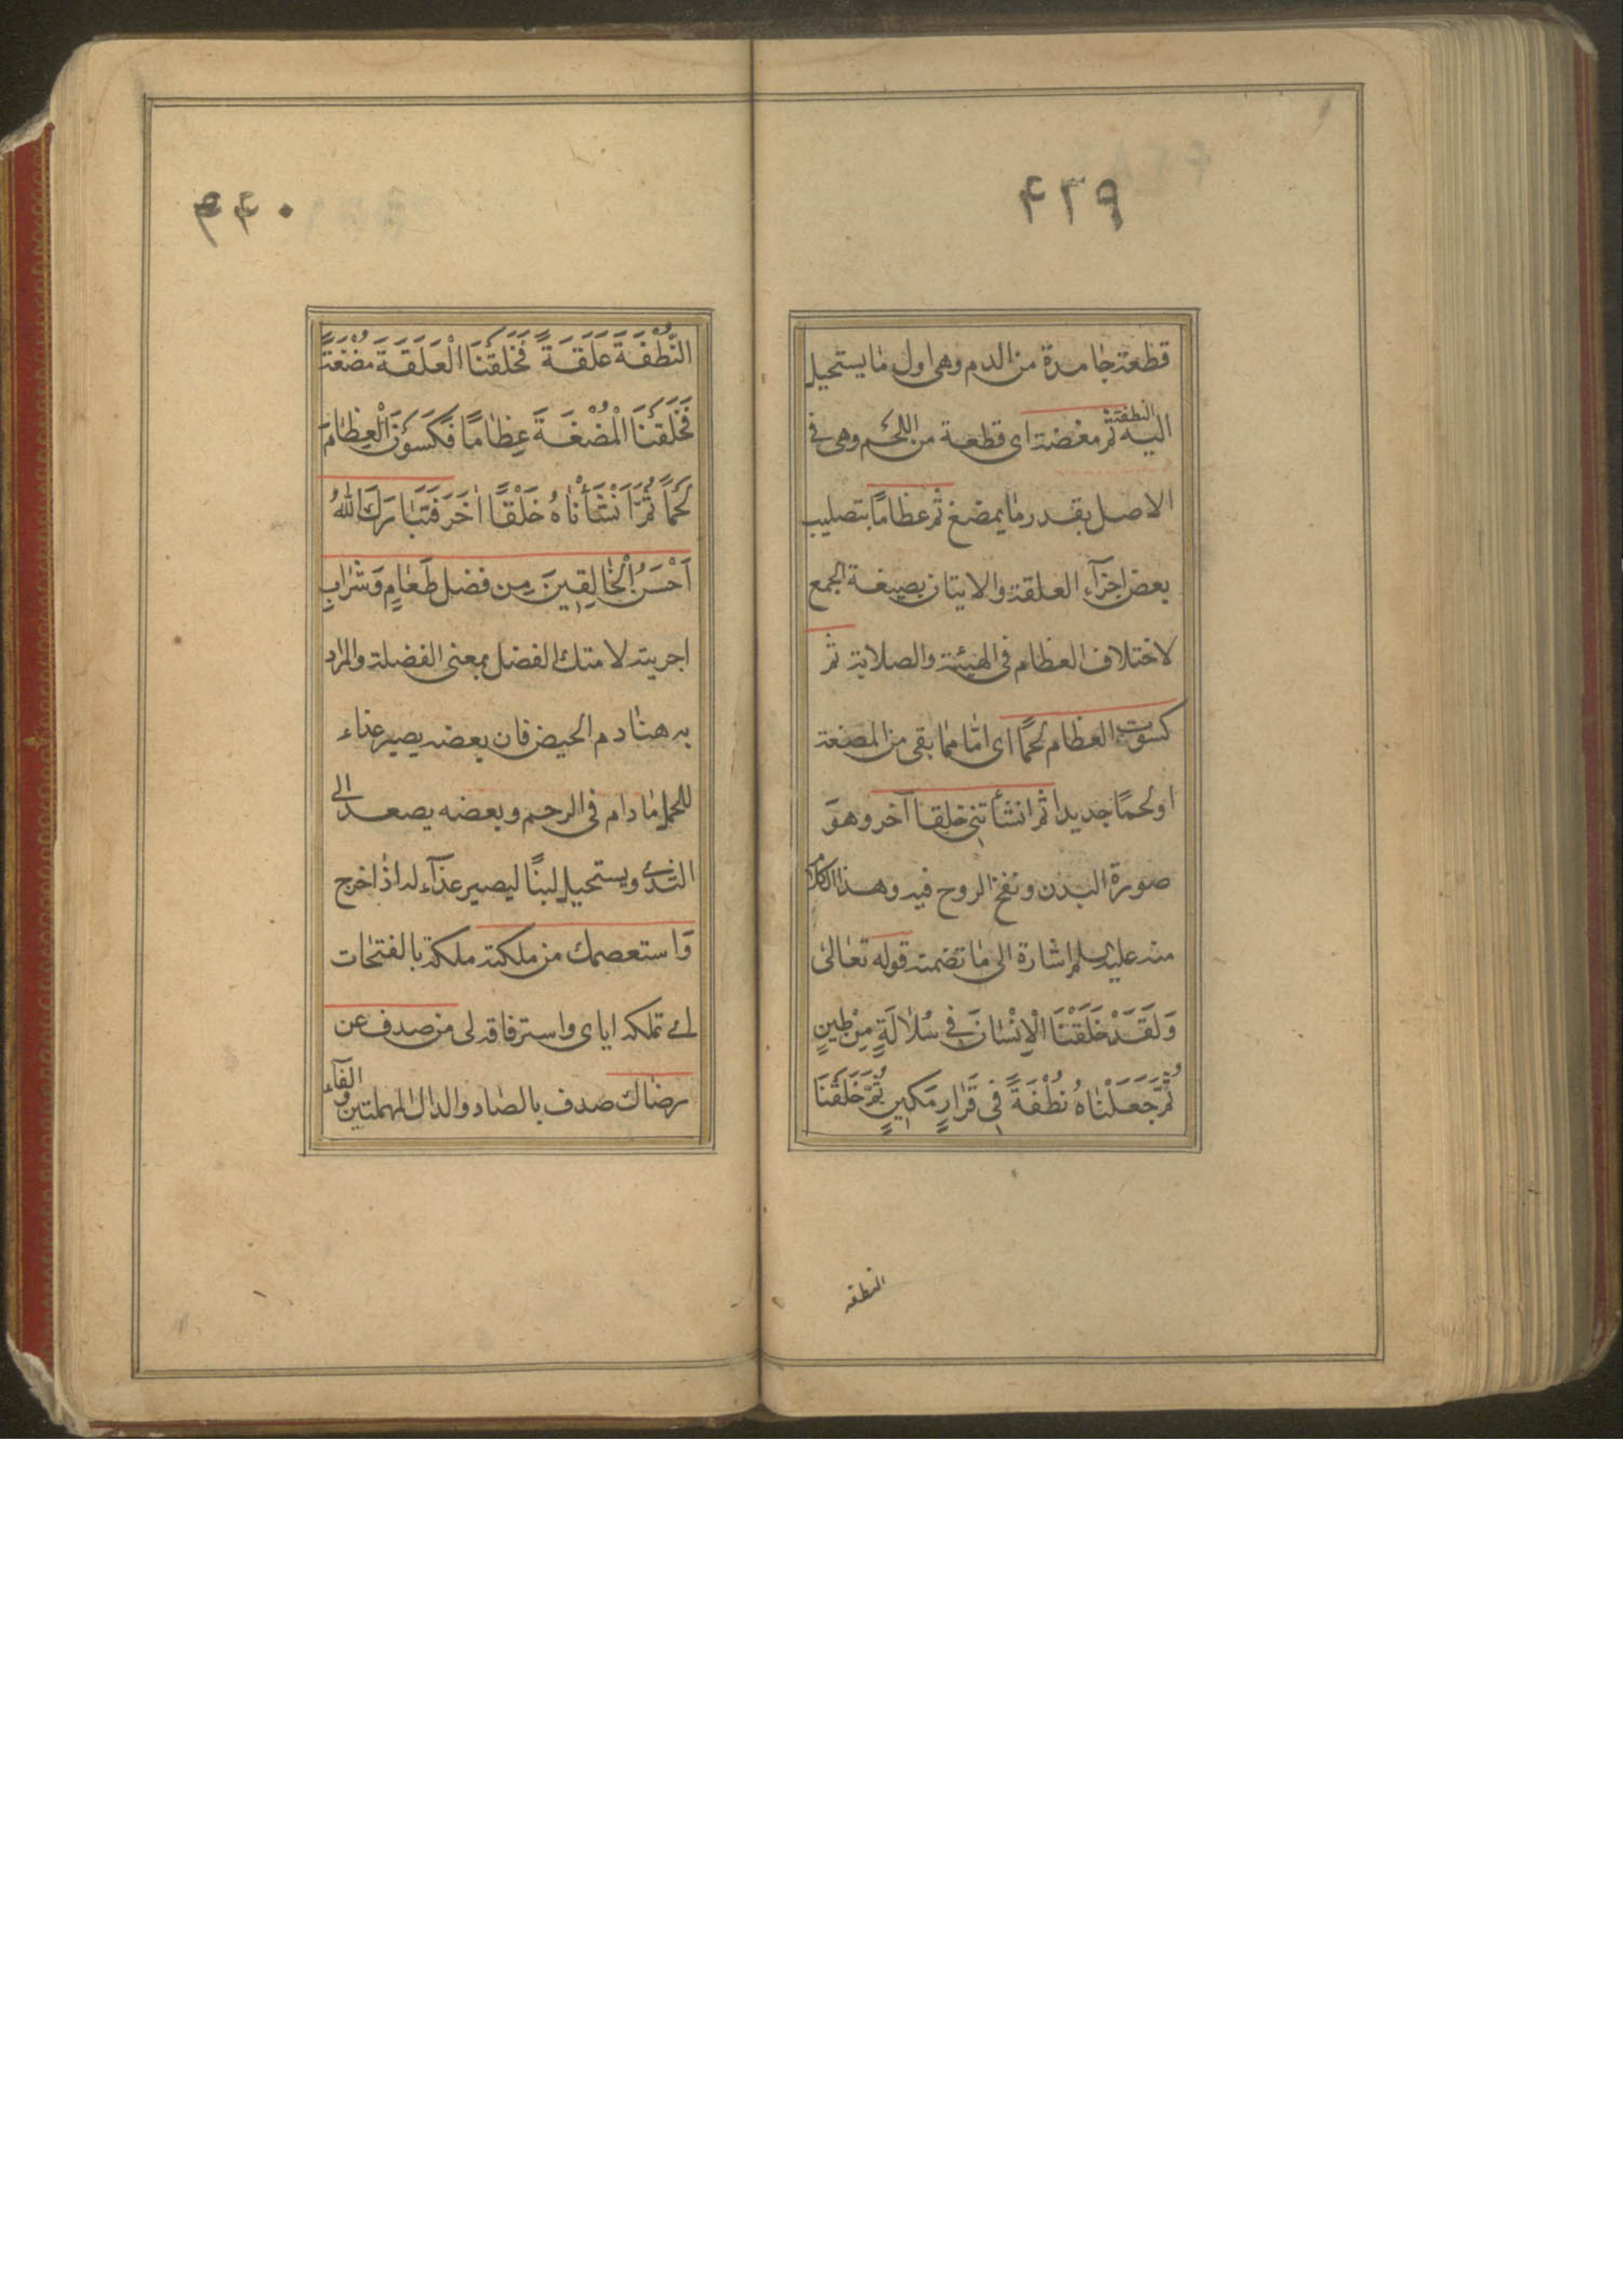 ۴۳۹
قطعة جامدة من الدم وهى اول ما يستحيل
اليه النطفة ثم مغضة اى قطعة من اللحم وهى فى
الاصل بقدر ما يمضغ ثم عظامًا بتصليب
بعض اجزآء العلقة والاتيان بصيغة الجمع
لاختلاف العظام فى الهيئة والصلابة ثم
كسوت العظام لحمًا اى امّا مما بقى من المضغة
او لحمًا جديدا ثم انشأتنى خلقا آخر وهو
صورة البدن ونفخ الروح فيه وهذا الكلام
منه عليه السلم اشارة الى ما تضمنه قوله تعالى
وَلَقَدْ خَلَقْنَا الْاِنْسَانَ فِي سُلَالَةٍ مِنْ طِينٍ
ثُمَّ جَعَلْنَاهُ نُطْفَةً فِي قَرَارٍ مَكِينٍ ثُمَّ خَلَقْنَا
النطفه
۴۴۰
النُّطْفَةَ عَلَقَةً فَخَلَقْنَا الْعَلَقَةَ مُضْغَةً
فَخَلَقْنَا الْمُضْغَةَ عِظَامًا فَكَسَوْنَا الْعِظَامَ
لَحْمًا ثُمَّ اَنْشَأْنَاهُ خَلْقًا اٰخَرَ فَتَبَارَكَ اللهُ
اَحْسَنُ الْخَالِقِينَ مِن فضل طَعَامٍ وَشَرَابٍ
اجريته لامتك الفضل بمعنى الفضلة والمراد
به هنا دم الحيض فان بعضه يصير غذاء
للحمل ما دام فى الرحم وبعضه يصعد الى
الثدى ويستحيل لبنًا ليصير غذآء له اذا خرج
وَاستعصمك من ملكته ملكة بالفتحات
اى تملكه اياى واسترقاقه لى من صدف عن
رضاك صدف بالصاد والدال المهملتين والفآء